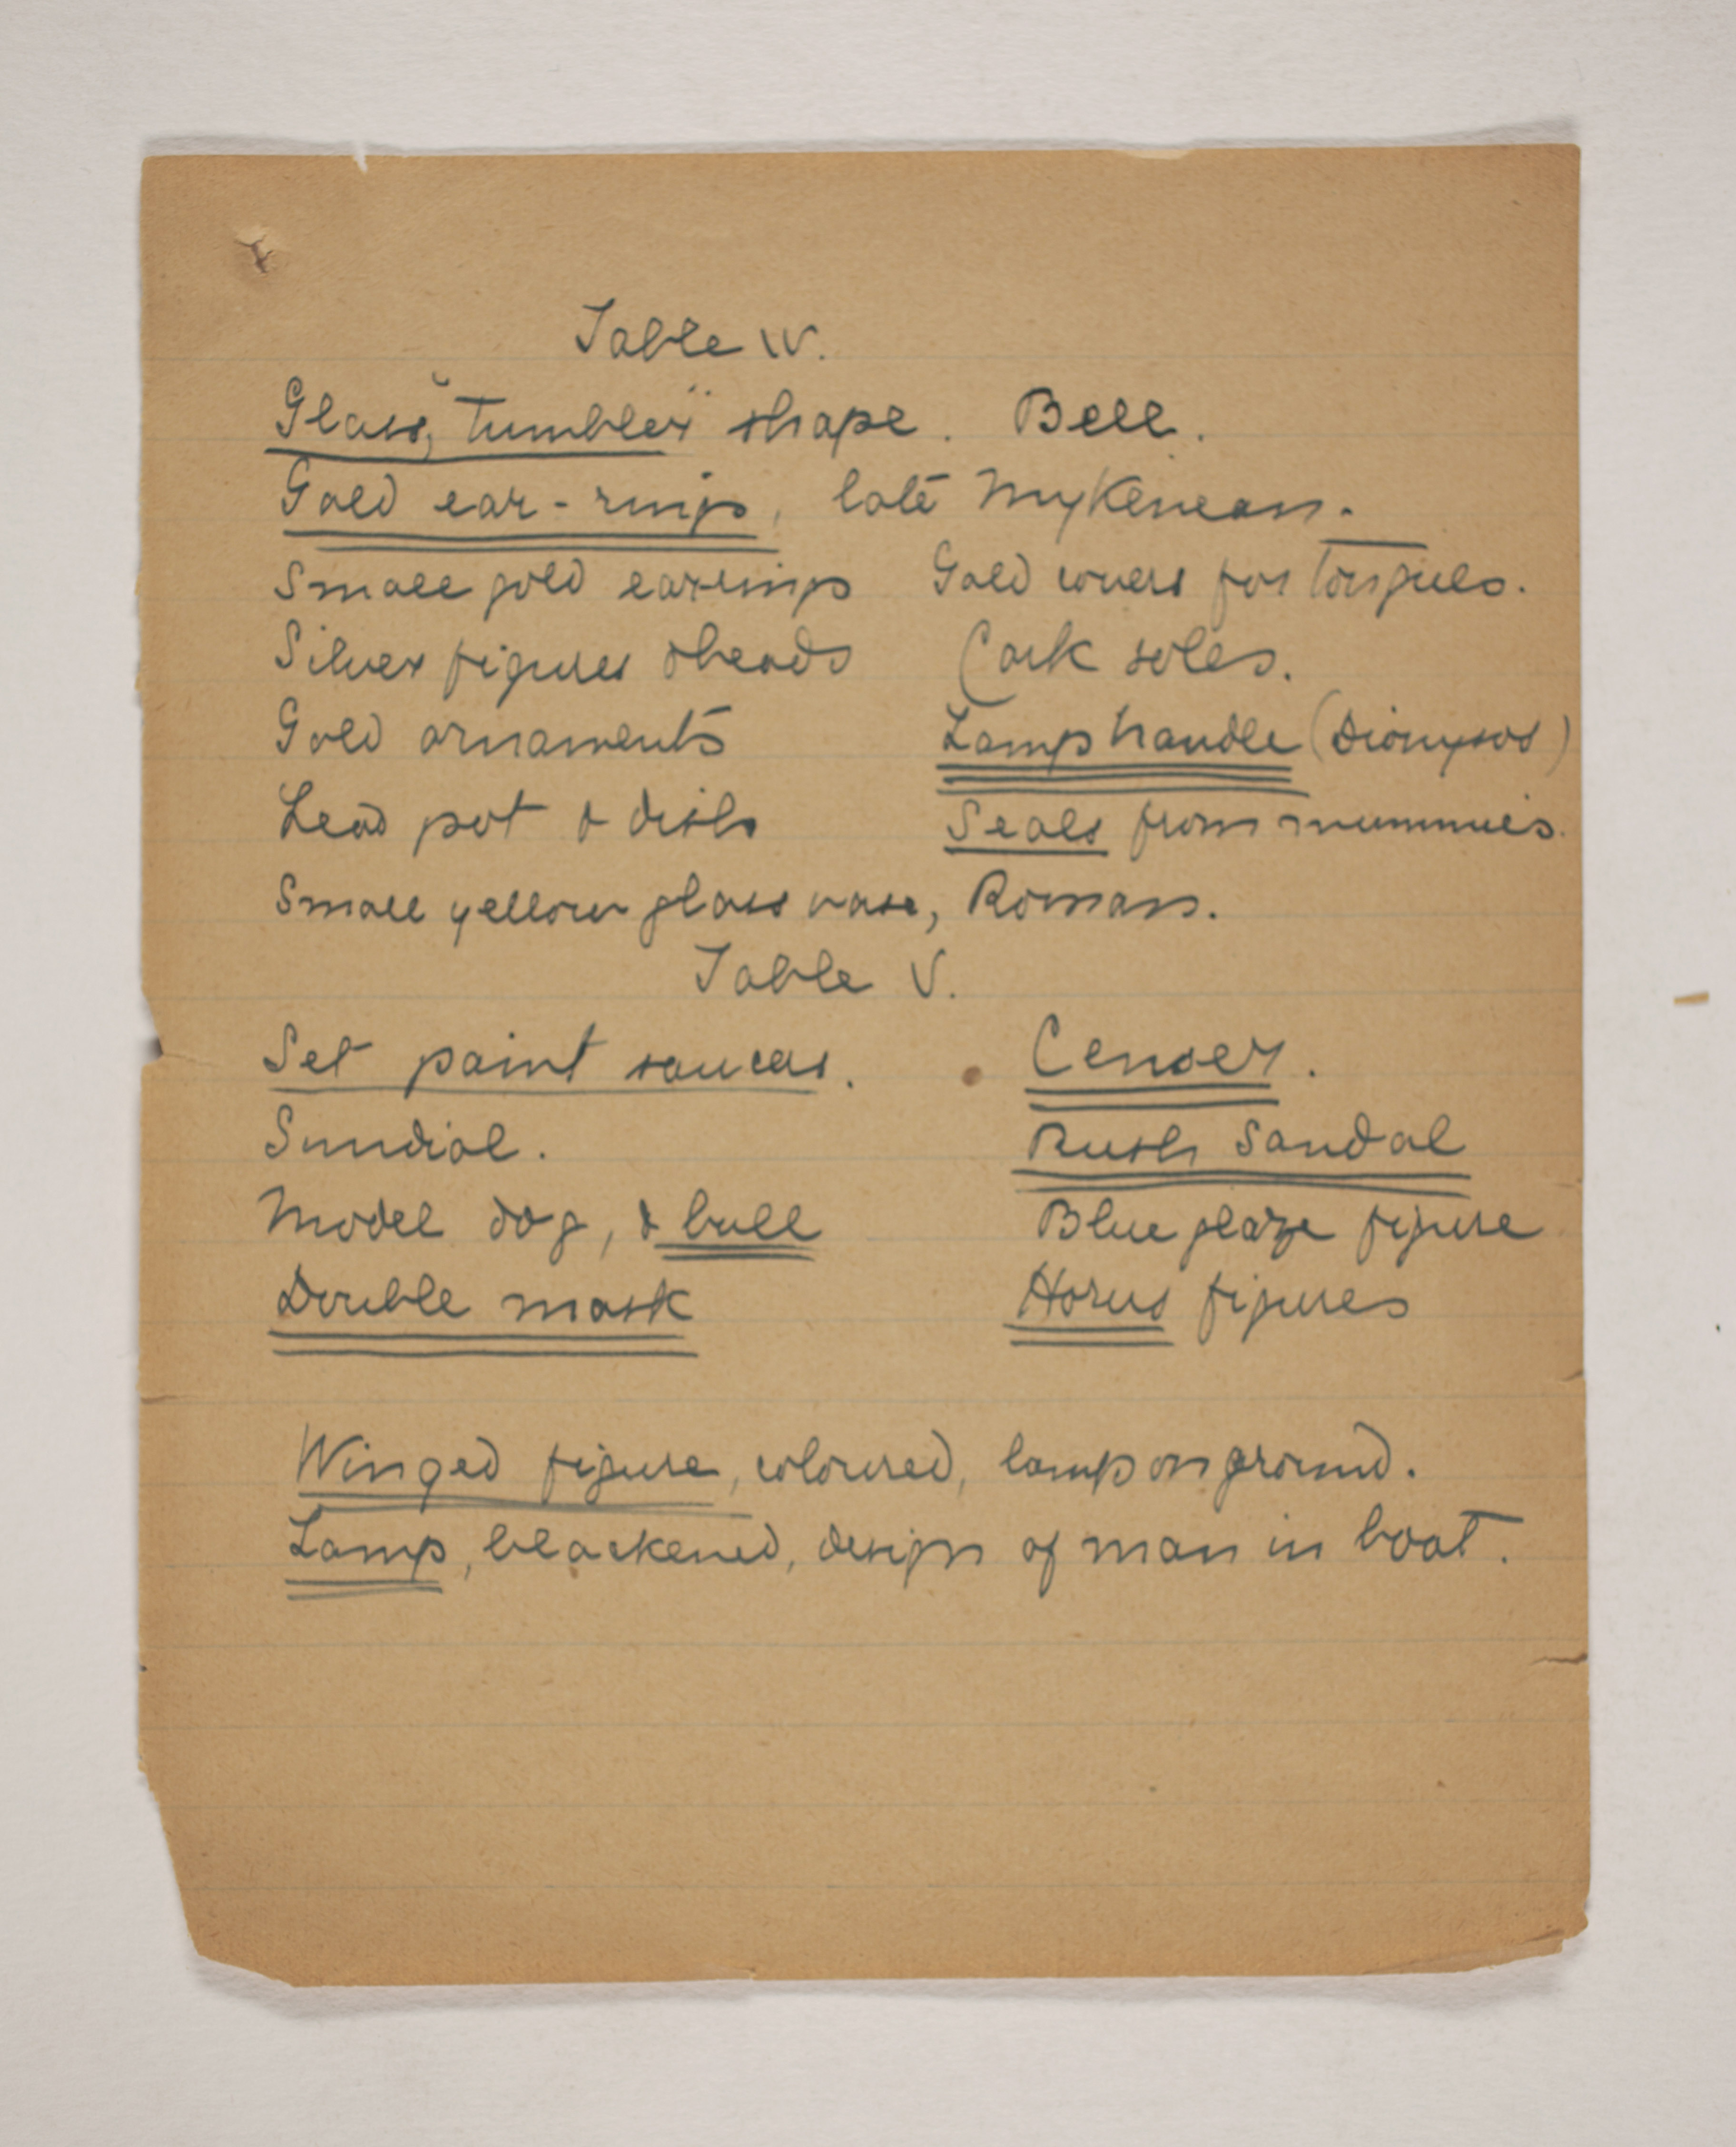 Table IV.
Glass, "Tumbler" shape. Bell.
Gold ear-rings, late Mykenean.
Small gold earrings Gold covers for tongues.
Silver figures & beads Cork soles.
Gold ornaments Lamp handle (Dionysos)
Lead pot & dish Seals from mummies.
Small yellow glass vase, Roman.
Table V.
Set paint saucers. Censer.
Sundial. Rush Sandal
Model dog, & bull Blue glaze figure
Double mask Horus figures
Winged figure, coloured, lamp on ground.
Lamp, blackened, design of man in boat.